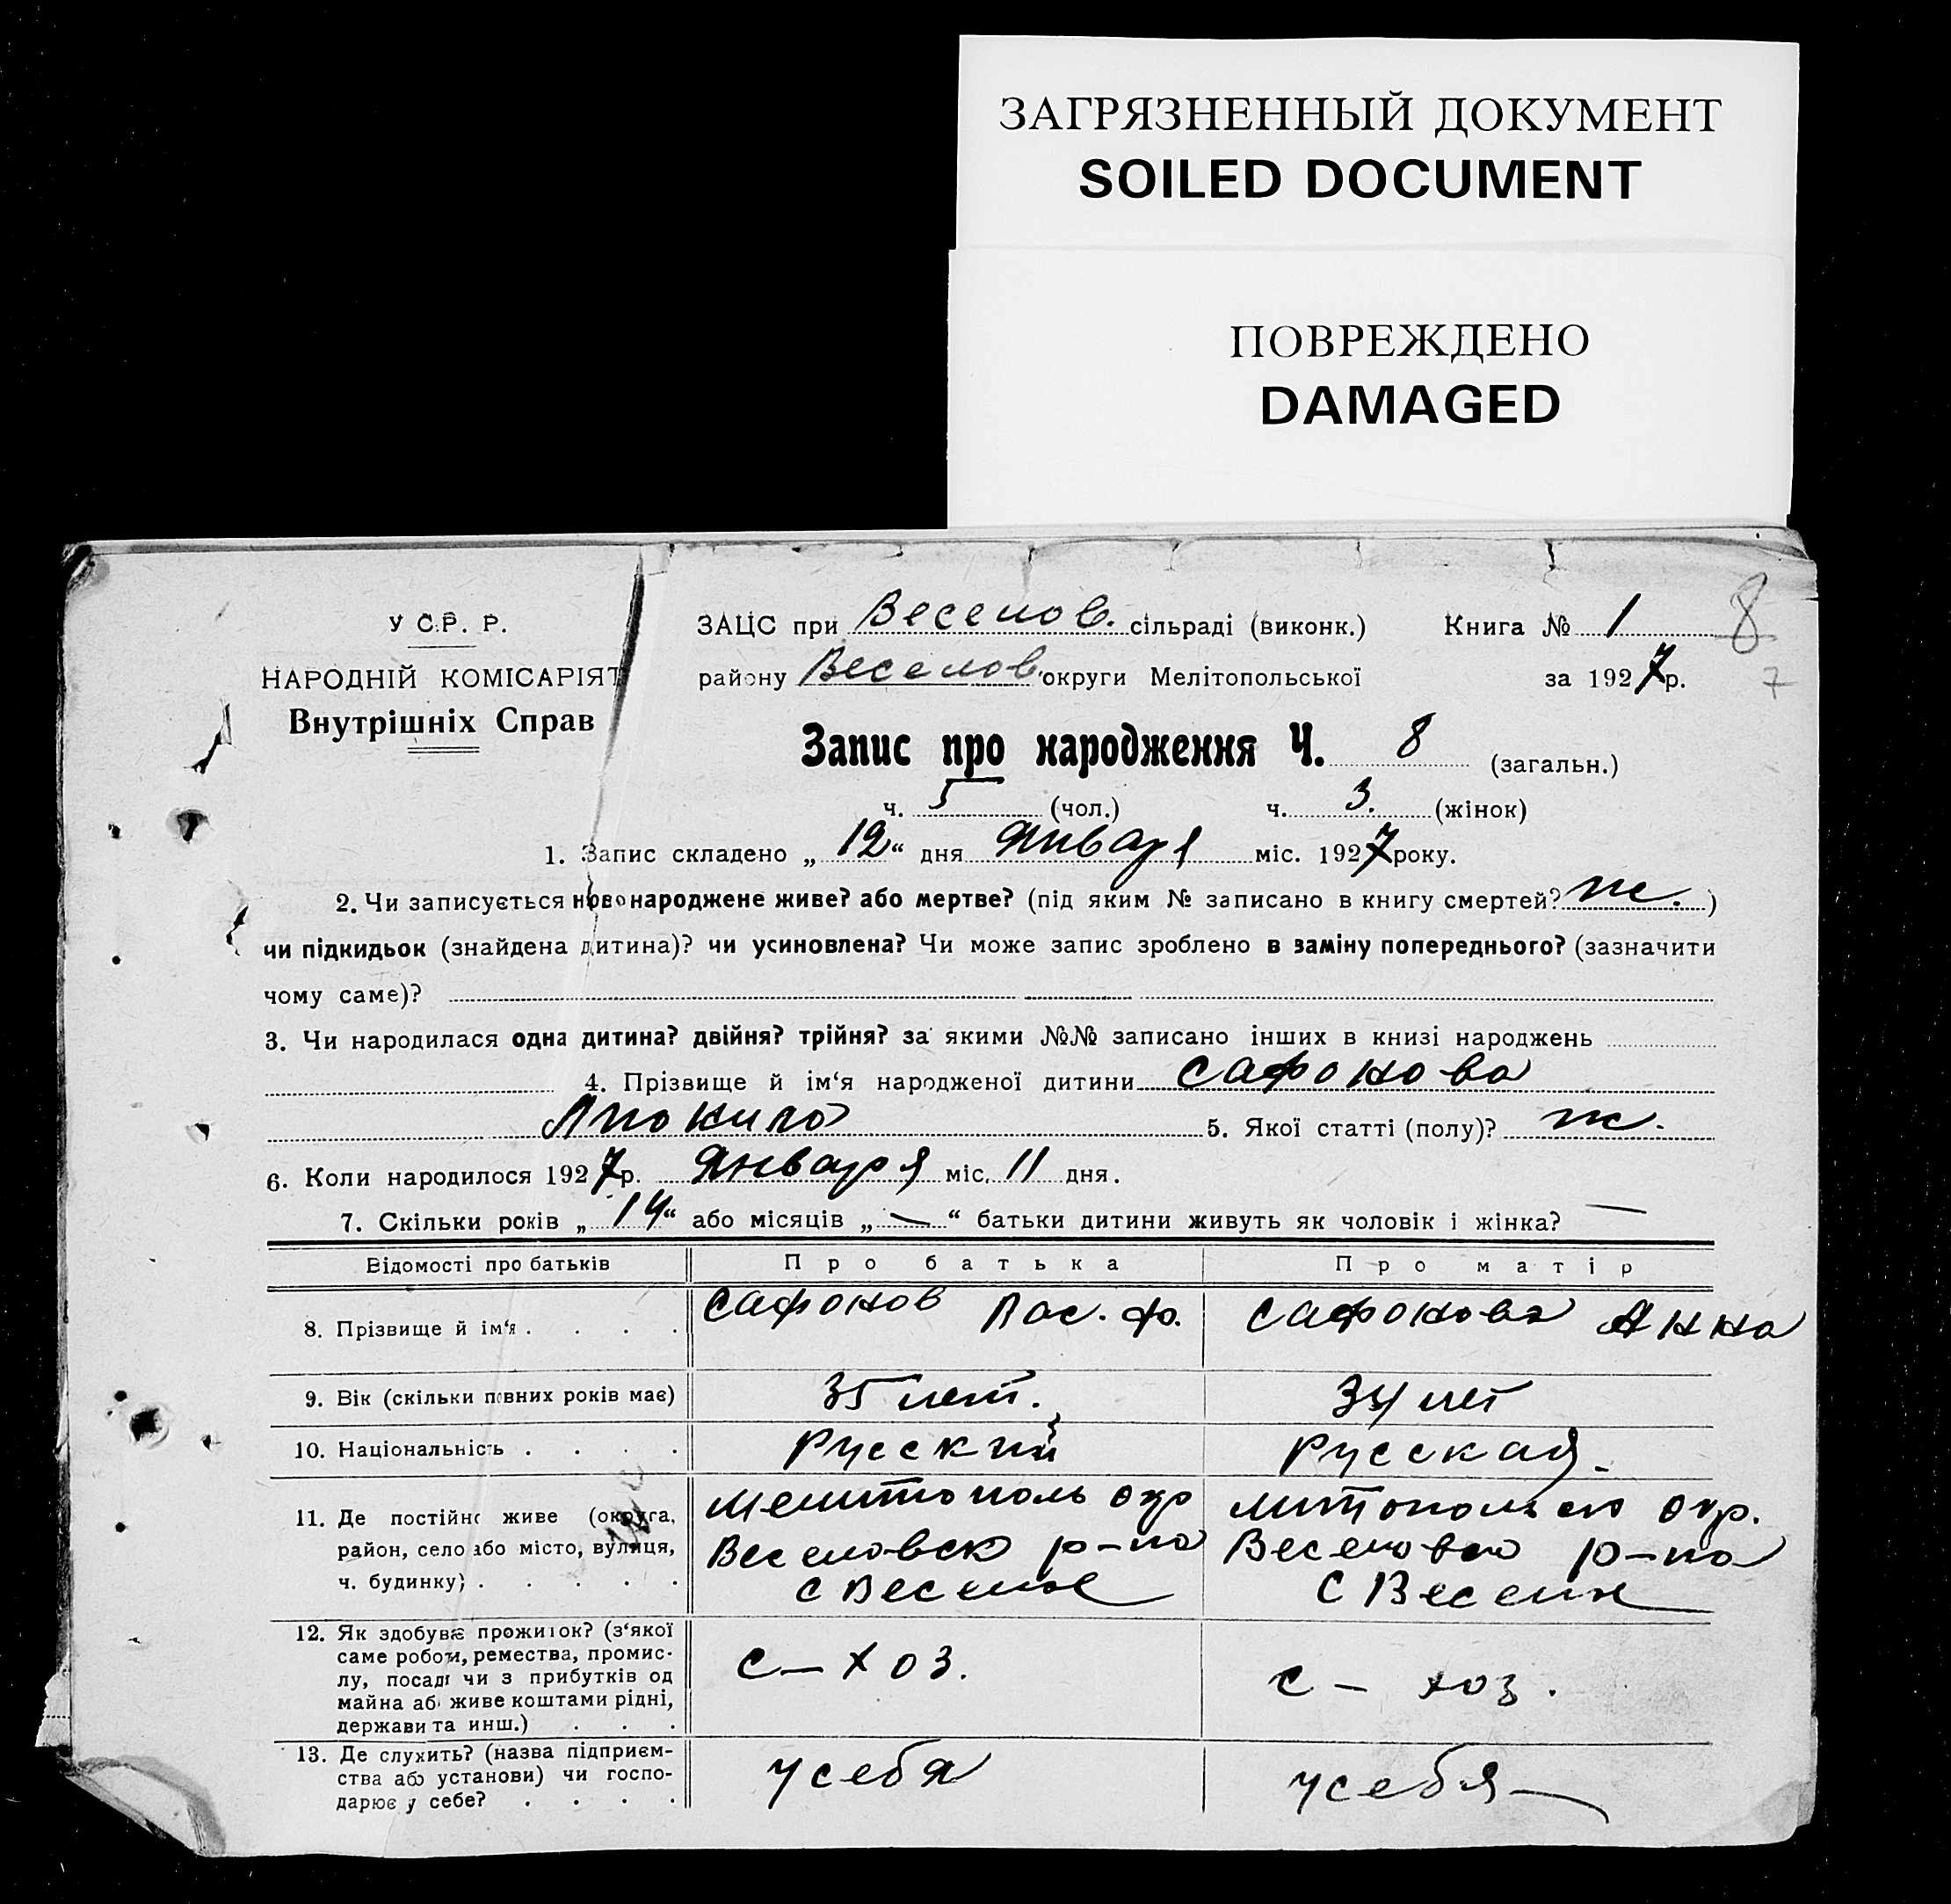 ЗАГРЯЗНЕННЫЙ ДОКУМЕНТ
SOILED DOCUMENT
ПОВРЕЖДЕНО
DAMAGED
У С.Р. Р.
НАРОДНІЙ КОМІСАРІЯТ
Внутрішніх Справ
ЗАЦС при Веселов. сільраді (виконк.) Книга № 1 8
району Веселов. округи Мелітопольської за 1927 р. 7
Запис про народження Ч. 8 (загальн.)
ч. 5 (чол.) ч. 3. (жінок)
1. Запис складено „ 12 “ дня Января міс. 1927 року.
2. Чи записується новонароджене живе? або мертве? (під яким № записано в книгу смертей? ж. )
чи підкидьок (знайдена дитина)? чи усиновлена? Чи може запис зроблено в заміну попереднього? (зазначити
чому саме)?
3. Чи народилася одна дитина? двійня? трійня? за якими №№ записано інших в книзі народжень
4. Прізвище й ім‘я народженої дитини Сафонова
5. Якої статті (полу)? ж.
6. Коли народилося 1927 р. Января міс. 11 дня.
7. Скільки років „ 14 “ або місяців „ — “ батьки дитини живуть як чоловік і жінка? —
Відомості про батьків Про батька Про матір
8. Прізвище й ім‘я . . . . Сафонов Вас. Ф. Сафонова Анна
9. Вік (скільки повних років має) 35 лет. 34 лет
10. Національність . . . . Русский Русская
11. Де постійно живе (округа, Мелитополь окр окр.
район, село або місто, вулиця, Веселовск р-на р-на
ч. будинку) . . . . . С Веселое С Веселое
12. Як здобуває прожиток? (з‘якої
саме роботи, ремества, промис-
лу, посади чи з прибутків од
майна або живе коштами рідні,
держави та инш.) . . . С-хоз. С-хоз.
13. Де служить? (назва підприєм-
ства або установи) чи госпо-
дарює у себе? . . . . у себя у себя